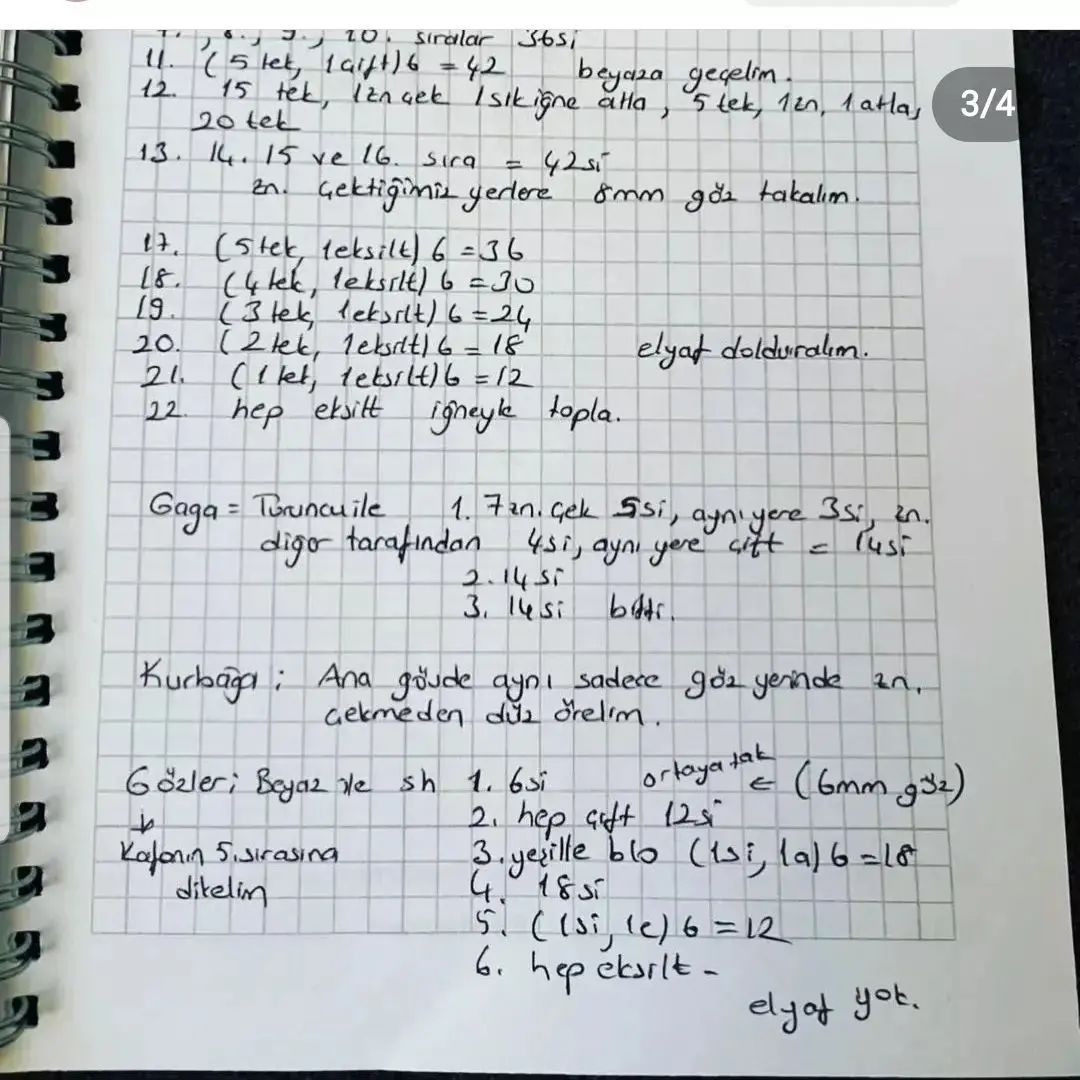 7., 8., 9., 10. sıralar 36si
11. (5 tek, 1çift)6 = 42 beyaza geçelim.
12. 15 tek, 1zn çek 1sık iğne atla, 5 tek, 1zn, 1atla,
20 tek
3/4
13. 14. 15 ve 16. sıra = 42si
zn. çektiğimiz yerlere 8mm göz takalım.
17. (5tek, 1eksilt) 6 = 36
18. (4tek, 1eksilt) 6 = 30
19. (3tek, 1eksilt) 6 = 24
20. (2tek, 1eksilt) 6 = 18 elyaf dolduralım.
21. (1tek, 1eksilt) 6 = 12
22. hep eksilt iğneyle topla.
Gaga = Turuncu ile 1. 7zn. çek 5si, aynı yere 3si, zn.
diğer tarafından 4si, aynı yere çift = 14si
2. 14 si
3. 14si bitti.
Kurbağa ; Ana gövde aynı sadece göz yerinde zn.
çekmeden düz örelim.
Gözler ; Beyaz ile sh 1. 6si ortaya tak ← (6mm göz)
↓ 2. hep çift 12si
Kafanın 5.sırasına 3. yeşille blo (1si, 1a) 6 = 18
dikelim 4. 18si
5. (1si, 1e) 6 = 12
6. hep eksilt -
elyaf yok.